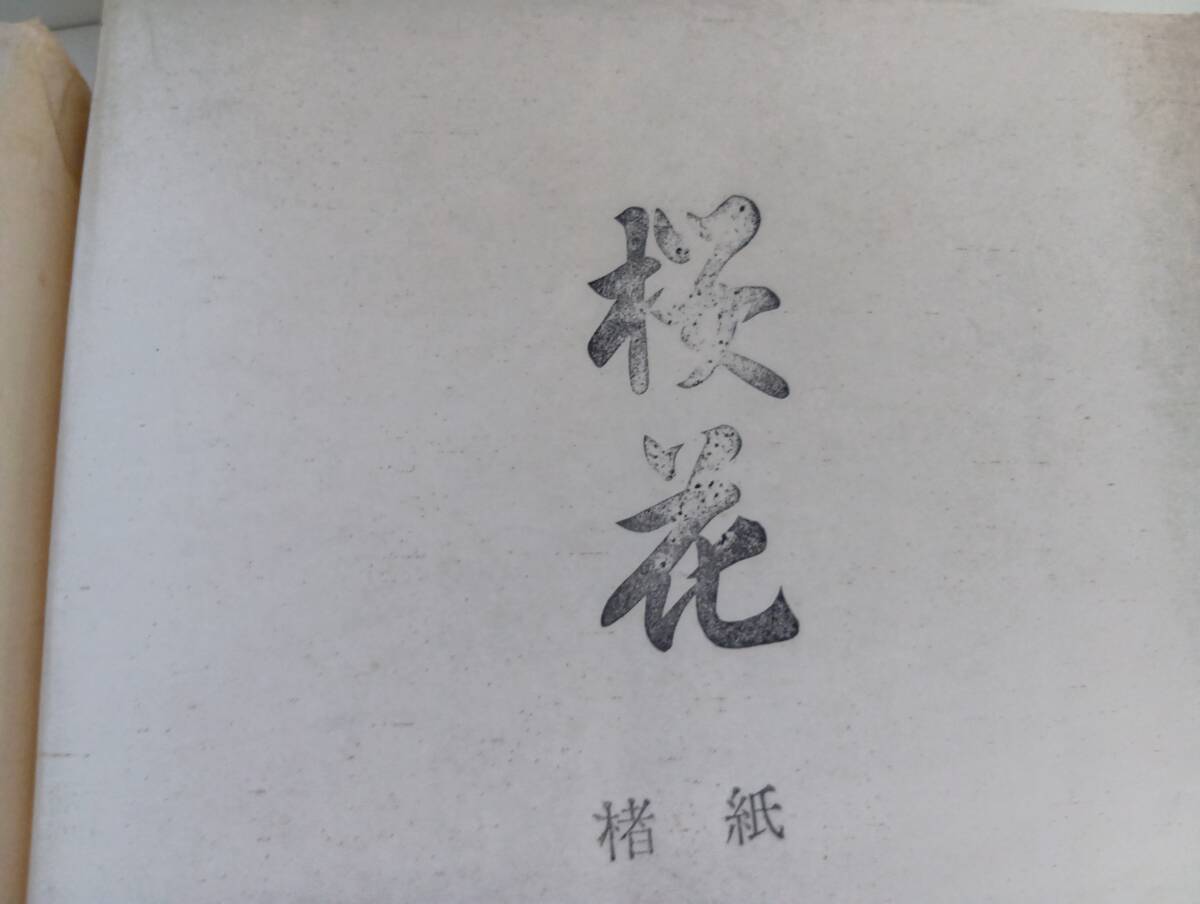 桜花
楮紙